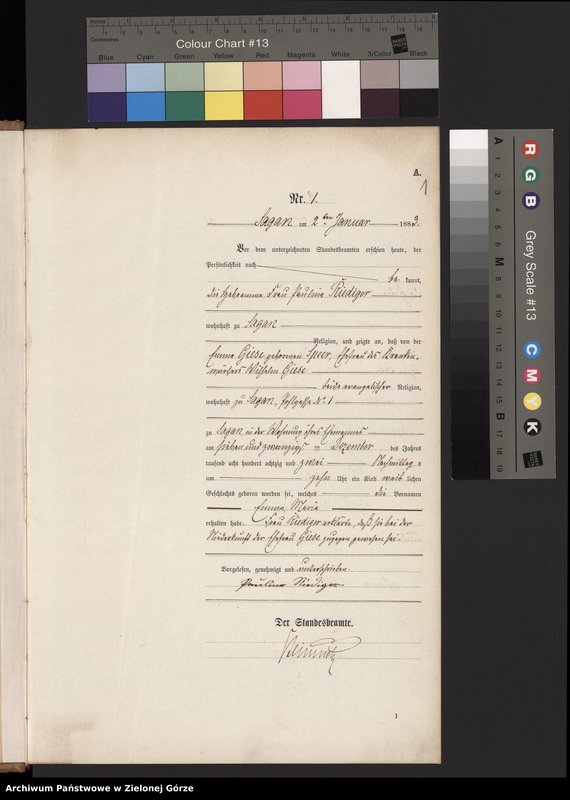 inches
Centimetres
Colour Chart #13
Blue Cyan Green Yellow Red Magenta White 3/Color Black
R G B
Grey Scale #13
C M Y K
A 1 2 3 4 5 6 M 8 9 10 11 12 13 14 15 B 17 18 19
A.
1
Nr. 1.
Sagan am 2ten Januar 1883.
Vor dem unterzeichneten Standesbeamten erschien heute, der
Persönlichkeit nach
be kannt,
die Hebamme Frau Pauline Rüdiger
wohnhaft zu Sagan
Religion, und zeigte an, daß von der
Emma Giese geborenen Speer, Ehefrau des
Wilhelm Giese
beide evangelischer Religion,
wohnhaft zu Sagan, No 1
zu Sagan in der Wohnung ihres Ehemannes
am sieben und zwanzigsten Dezember des Jahres
tausend acht hundert achtzig und zwei Nachmittag s
um zehn Uhr ein Kind weib lichen
Geschlechts geboren worden sei, welches die Vornamen
Emma, Maria
erhalten habe. Frau Rüdiger erklärte, daß sie bei der
Niederkunft der Ehefrau Giese zugegen gewesen sei.
Vorgelesen, genehmigt und unterschrieben
Pauline Rüdiger
Der Standesbeamte.
1
Archiwum Państwowe w Zielonej Górze